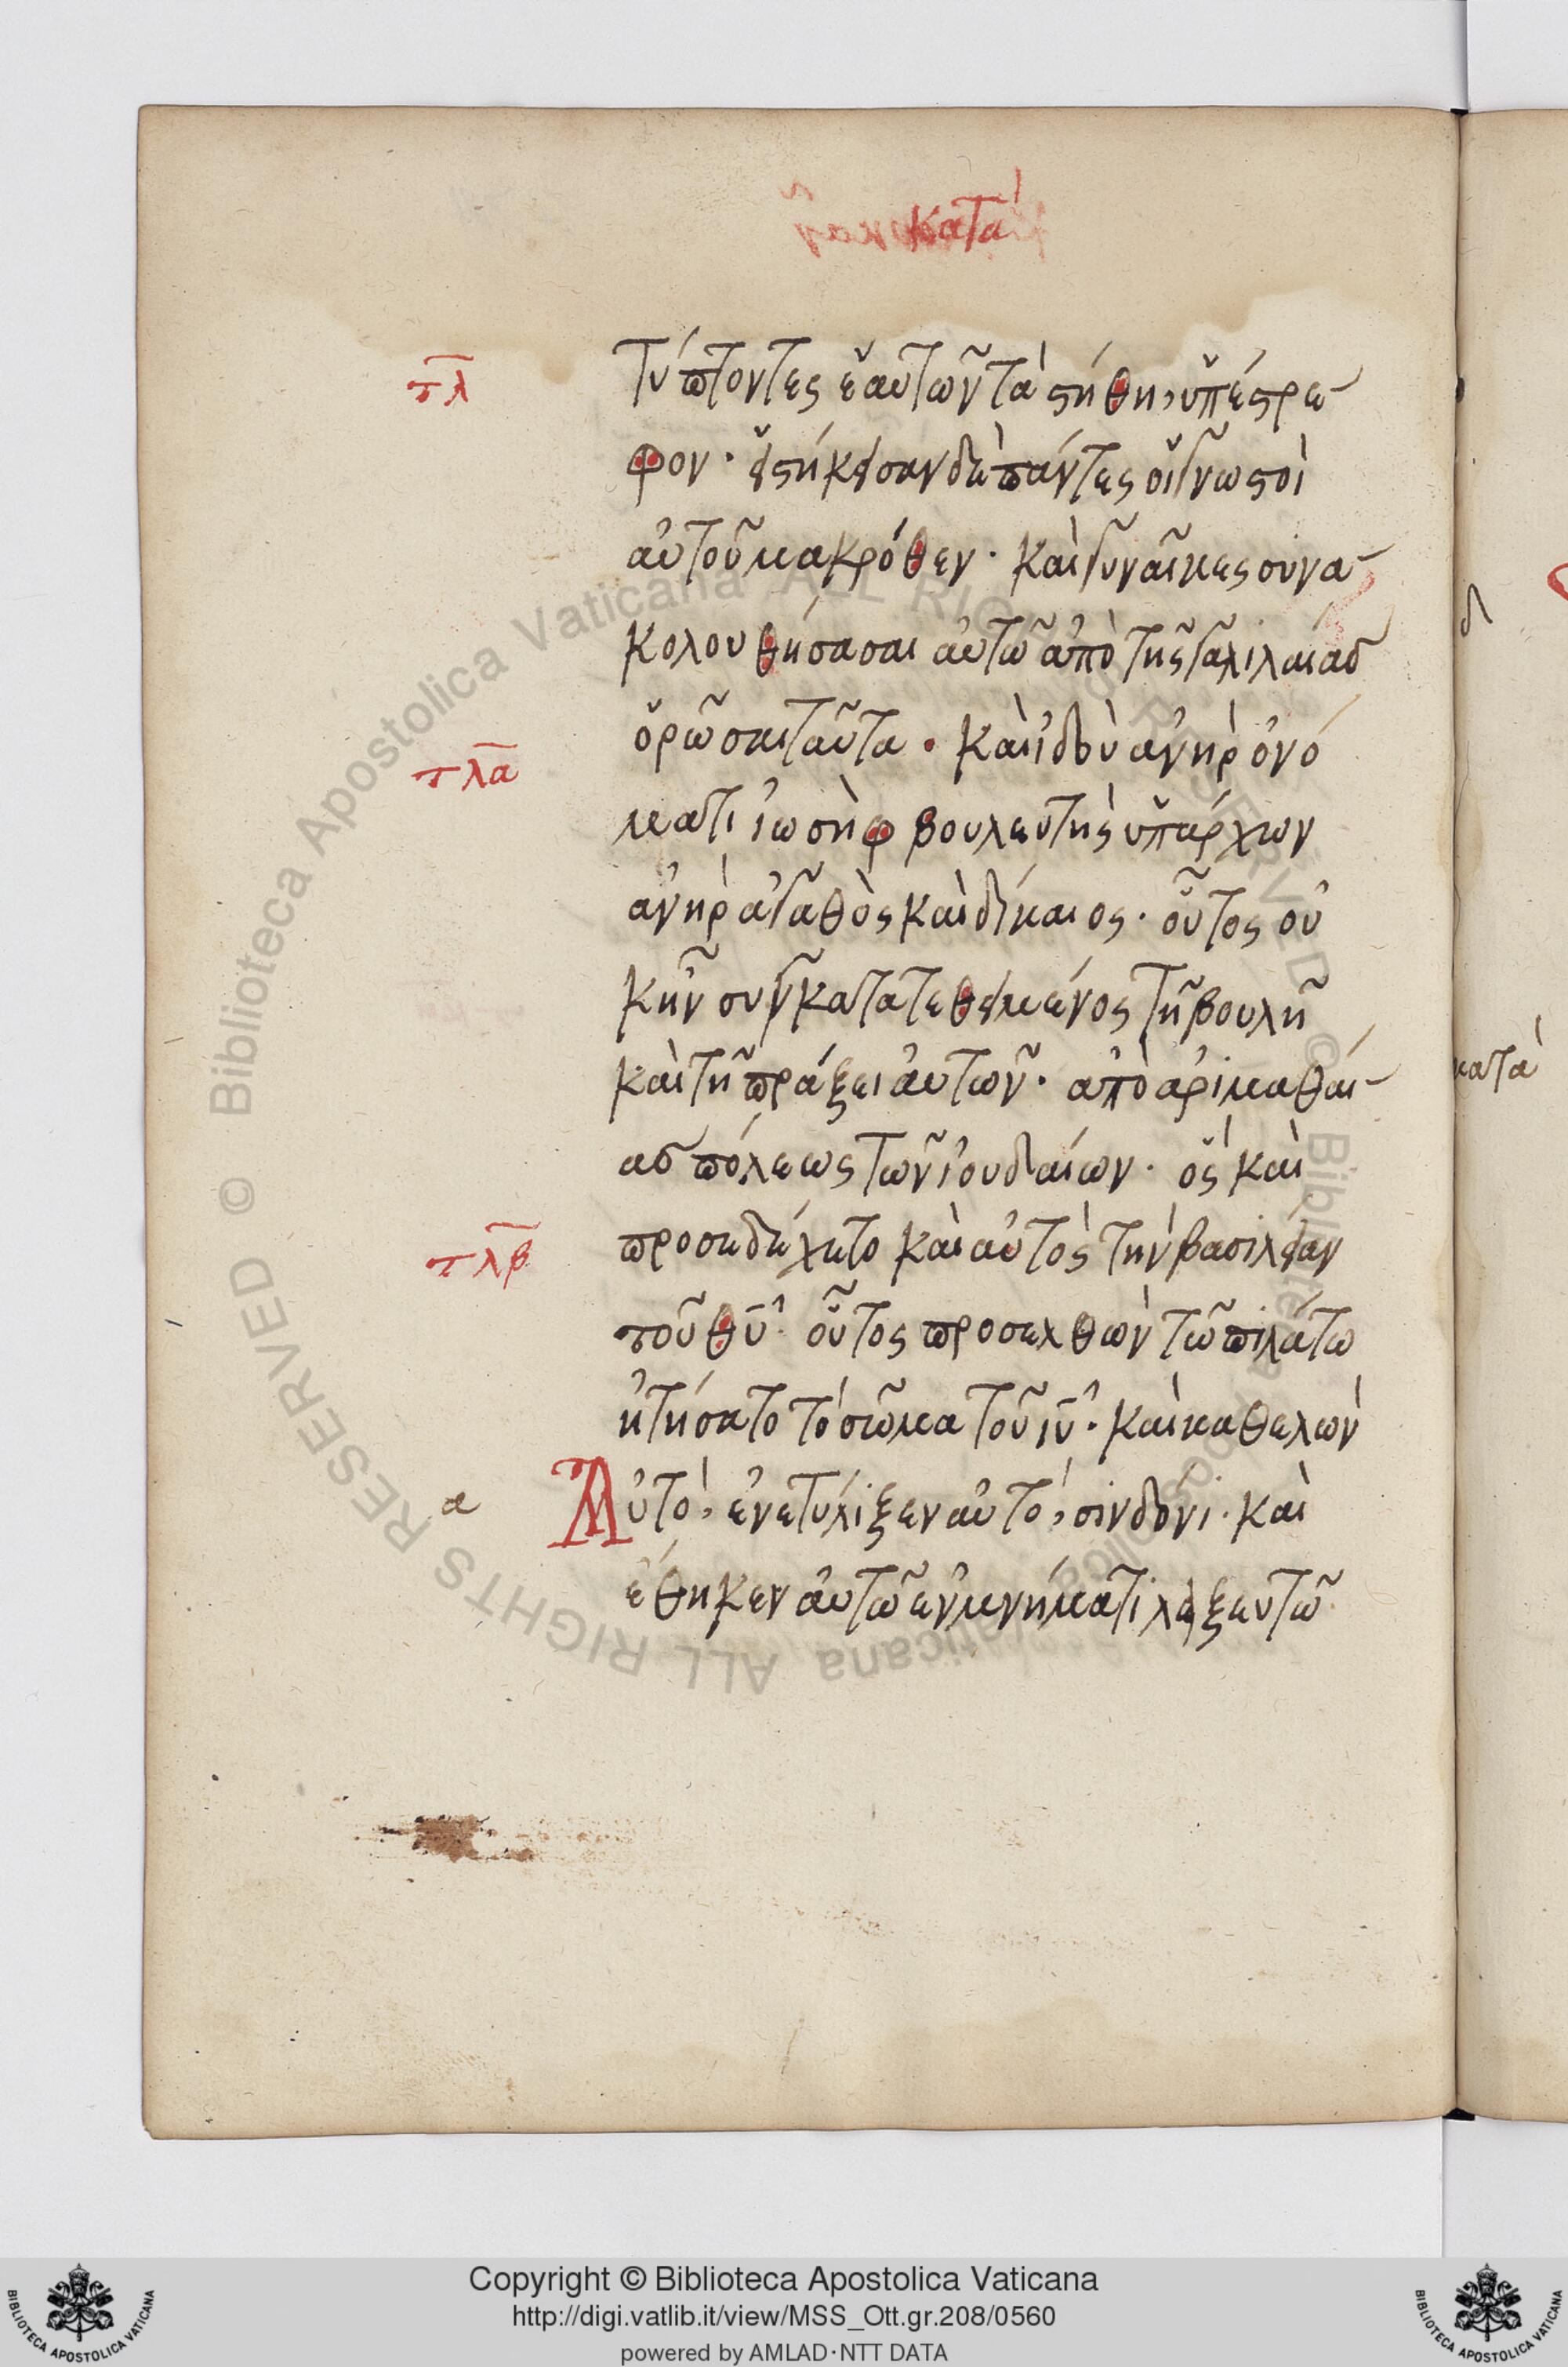 κατὰ
τλ
τύπτοντες ἑαυτῶν τὰ στήθη, ὑπέστρε-
φον· εἱστήκεισαν δὲ πάντες οἱ γνωστοὶ
αὐτοῦ μακρόθεν· καὶ γυναῖκες συνα-
κολουθήσασαι αὐτῶ ἀπὸ τῆς γαλιλαίασ
ὁρῶσαι ταῦτα· καὶ ἰδοὺ ἀνὴρ ὀνό
τλα
ματι ἰωσὴφ βουλευτὴς ὑπάρχων
ἀνὴρ ἀγαθὸς καὶ δίκαιος· οὗτος οὐ
κἦν συγκατατεθειμένος τῆ βουλῆ
καὶ τῆ πράξει αὐτῶν· ἀπὸ ἀριμαθαί-
ασ πόλεως τῶν ἰουδαίων· ὃς καὶ
τλβ
προσεδέχετο καὶ αὐτὸς τὴν βασιλείαν
τοῦ θῦ· οὗτος προσελθὼν τῶ πιλάτω
ἠτήσατο τὸ σῶμα τοῦ ιῦ· καὶ καθελὼν
α
Αὐτὸ, ἐνετύλιξεν αὐτὸ, σινδόνι· καὶ
ἔθηκεν αὐτῶ ἐν μνήματι λαξευτῶ
δ
κατὰ
Copyright © Biblioteca Apostolica Vaticana
http://digi.vatlib.it/view/MSS_Ott.gr.208/0560
powered by AMLAD·NTT DATA